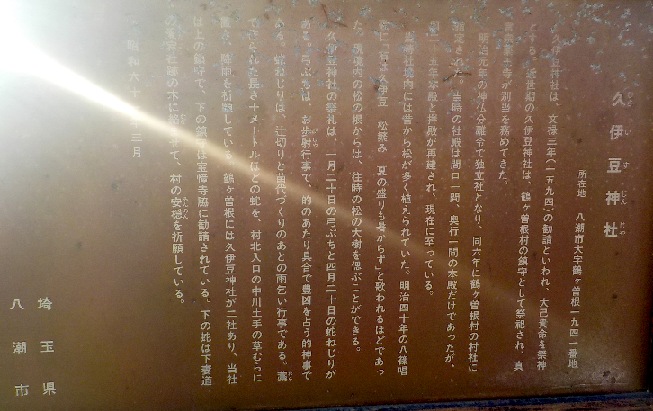 久伊豆神社
所在地 八潮市大字鶴ヶ曽根一九四一番地
伊豆神社は、文禄三年(一五九四)の勧請といわれ、大己貴命を祭神
とする。近世期の久伊豆神社は、鶴ヶ曽根村の鎮守として祭祀され、真
が別当を務めてきた。
明治元年の神仏分離令で独立社となり、同六年に鶴ヶ曽根村の村社に
された。当時の社殿は間口一間、奥行一間の本殿だけであったが、
年本殿と拝殿が再建され、現在に至っている。
神社境内には昔から松が多く植えられていた。明治四十年の八條唱
歌に「久伊豆 松繁み 夏の盛りも暑からず」と歌われるほどであっ
た。境内の松の根からは、往時の松の大樹を偲ぶことができる。
久伊豆神社の祭礼は、一月二十日の弓ぶちと四月二十日の蛇ねじりが
ある。弓ぶちは、お歩射行事で、的のあたり具合で豊凶を占う的神事で
ある。蛇ねじりは、辻切りと苗代づくりのあとの雨乞い行事である。藁
で作られた長さ十メートルほどの蛇を、村北入口の中川土手の草むらに
している。鶴ヶ曽根には久伊豆神社が二社あり、当社
は上の鎮守で、下の鎮守は宝幢寺脇に勧請されている。下の蛇は下妻道
の木に させて、村の安穏を祈願している。
昭和六十 年三月
埼玉県
八潮市